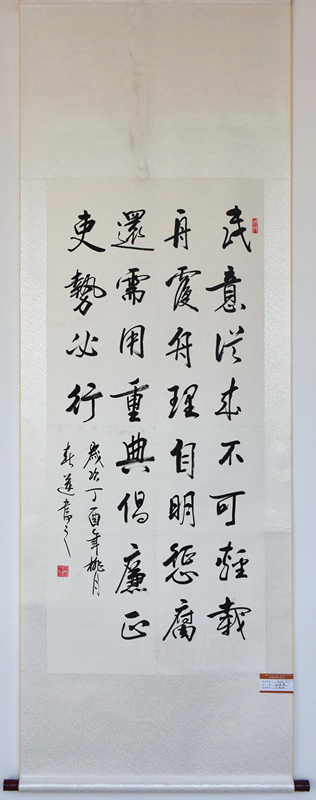 民意從來不可輕載
舟覆舟理自明懲腐
還需用重典倡廉正
吏勢必行
歲次丁酉年桃月
書之